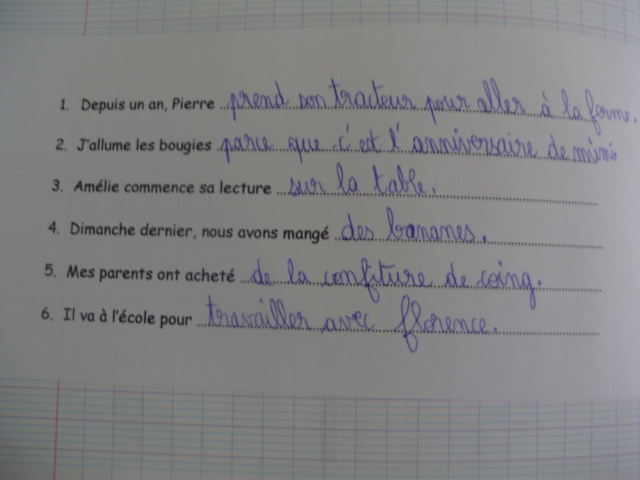 1. Depuis un an, Pierre prend son tracteur pour aller à la ferme.
2. J'allume les bougies parce que c'est l'anniversaire de mimi
3. Amélie commence sa lecture sur la table.
4. Dimanche dernier, nous avons mangé des bananes.
5. Mes parents ont acheté de la confiture de coing.
6. Il va à l'école pour travailler avec florence.